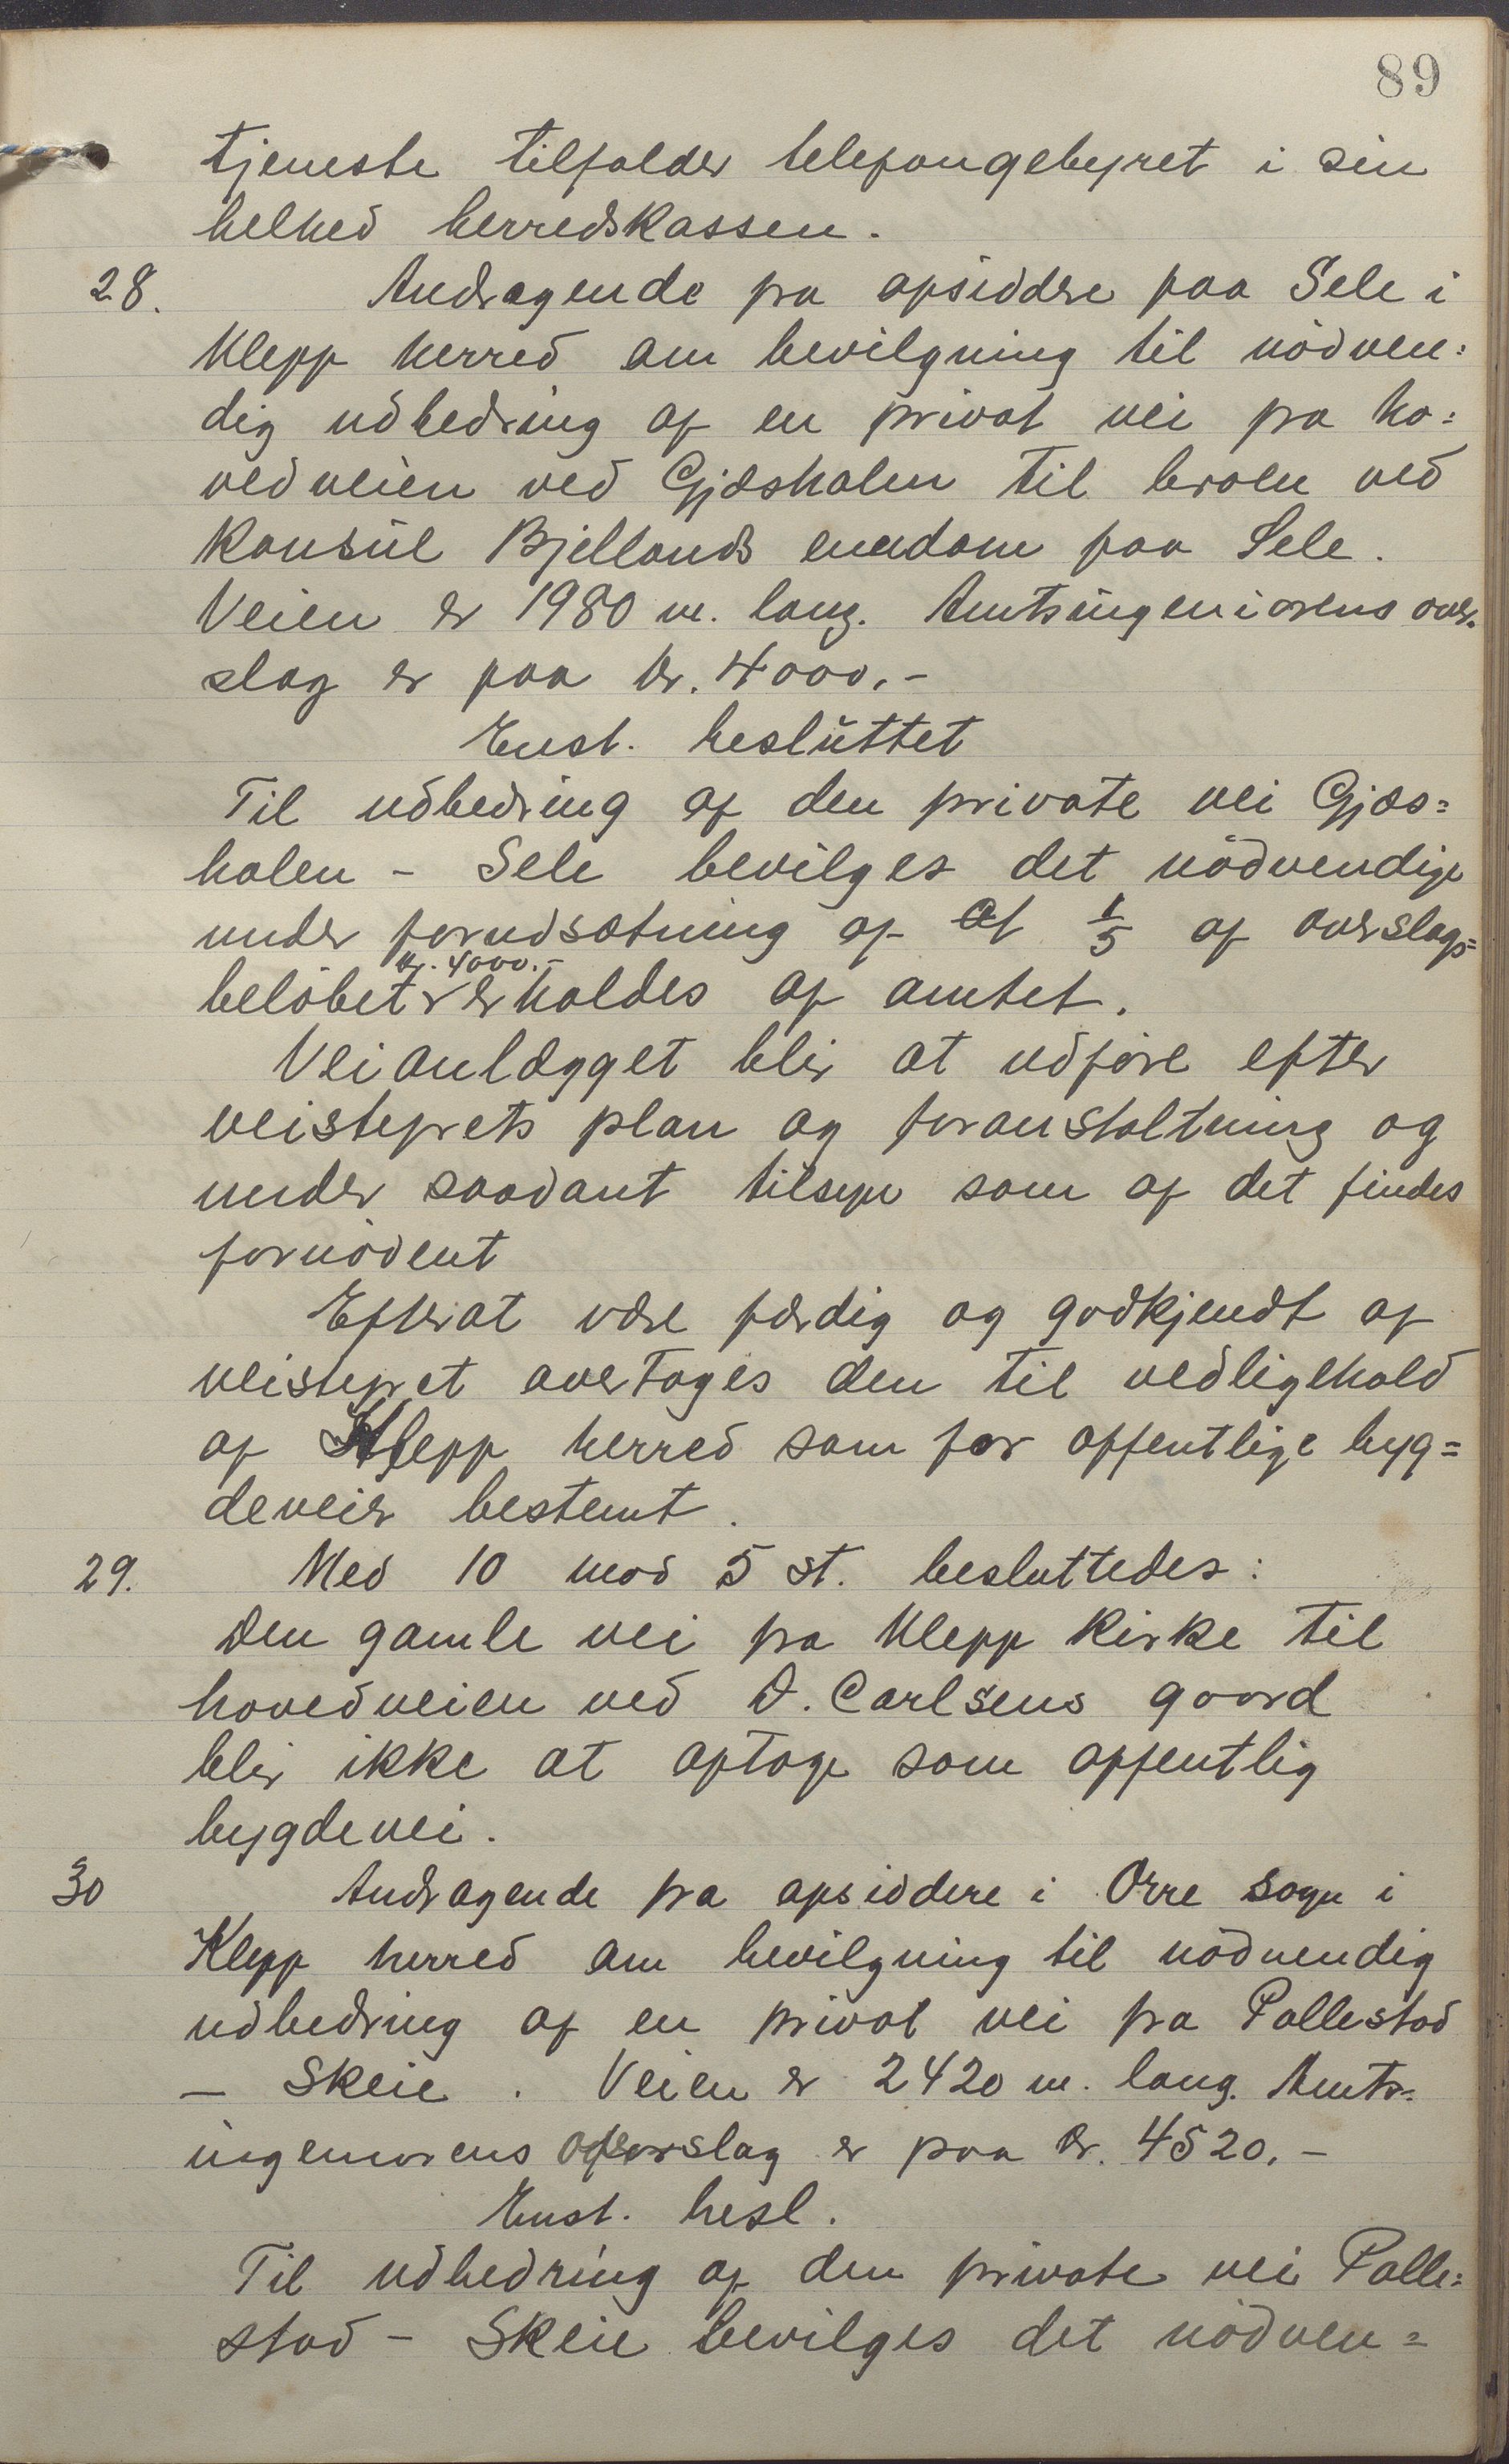 89
tjeneste tilfalder telefongebyret i sin
helhed herredskassen.
28. Andragende fra opsiddere paa Sele i
Klepp herred om bevilgning til nödven=
dig udbedring af en privat vei fra ho=
vedveien ved Gjæshalen til broen ved
Konsul Bjellands eiendom paa Sele.
Veien er 1980 m. lang. Amtsingeniørens over-
slag er paa kr. 4000.-
Enst. besluttet
Til udbedring af den private vei Gjæs=
halen - Sele bevilges det nödvendige
under forudsætning af at 1/5 af overslags=
kr. 4000.-
belöbet erholdes af amtet.
Veianlægget blir at udføre efter
veistyrets plan og foranstaltning og
under saadant tilsyn som af det findes
fornödent
Efterat være færdig og godkjendt af
veistyret overtages den til vedligehold
af Klepp herred som for offentlige byg=
deveier bestemt.
29. Med 10 mod 5 st. besluttedes:
Den gamle vei fra Klepp Kirke til
hovedveien ved O. Carlsens gaard
blir ikke at optage som offentlig
bygdevei.
30 Andragende fra opsiddere i Orre sogn i
Klepp herred om bevilgning til nödvendig
udbedring af en privat vei fra Pollestad
- Skeie. Veien er 2420 m. lang. Amts=
ingeniørens overslag er paa kr. 4520.-
Enst. besl.
Til udbedring af den private vei Polle=
stad - Skeie bevilges det nödven=